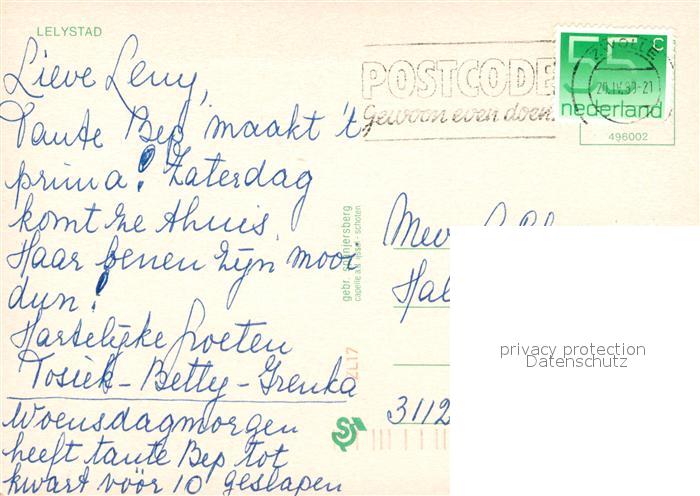 LELYSTAD
Lieve Leny,
Tante Bep maakt 't
prima! Zaterdag
komt ze thuis.
Haar benen zijn mooi
dun!
Hartelijke groeten
Tosiek - Betty - Grenka
Woensdagmorgen
heeft tante Bep tot
kwart vóór 10 geslapen
gebr. spanjersberg
capelle a.d. ijssel - schoten
ZL17
POSTCODE
Gewoon even doen.
ZWOLLE
20.IV.83-21
55 c
nederland
496002
Mev.
3112
privacy protection
Datenschutz